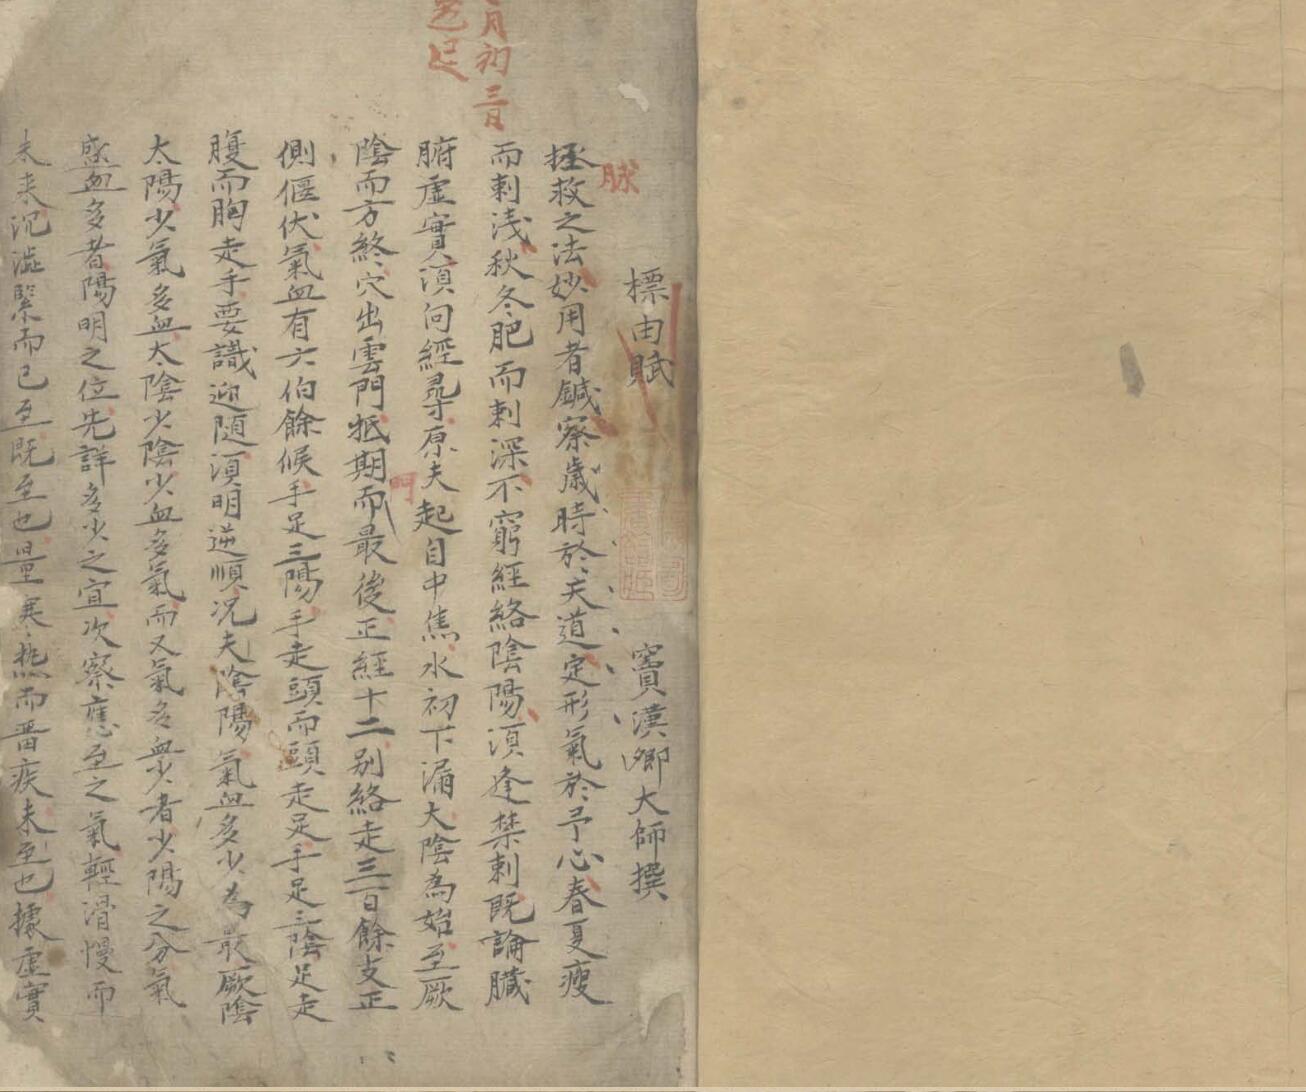 標由賦 竇漢卿大師撰
脉
拯救之法妙用者鍼察歲時於天道定形氣於予心春夏瘦
而刺淺秋冬肥而刺深不窮經絡陰陽湏逢禁刺既論臟
月初三日
腑虛實湏向經尋原夫起自中焦水初下漏大陰為始至厥
陰而方終穴出雲門抵期而最後正經十二別絡走三百餘支正
門
側偃伏氣血有六伯餘候手足三陽手走頭而頭走足手足三陰足走
腹而胸走手要識迎隨湏明逆順况夫陰陽氣血多少為最厥陰
太陽少氣多血太陰少陰少血多氣而又氣多血少者少陽之分氣
盛血多者陽明之位先詳多少之宜次察應至之氣輕滑慢而
未来沉澁緊而已至既至也量寒熱而畱疾未至也據虛實